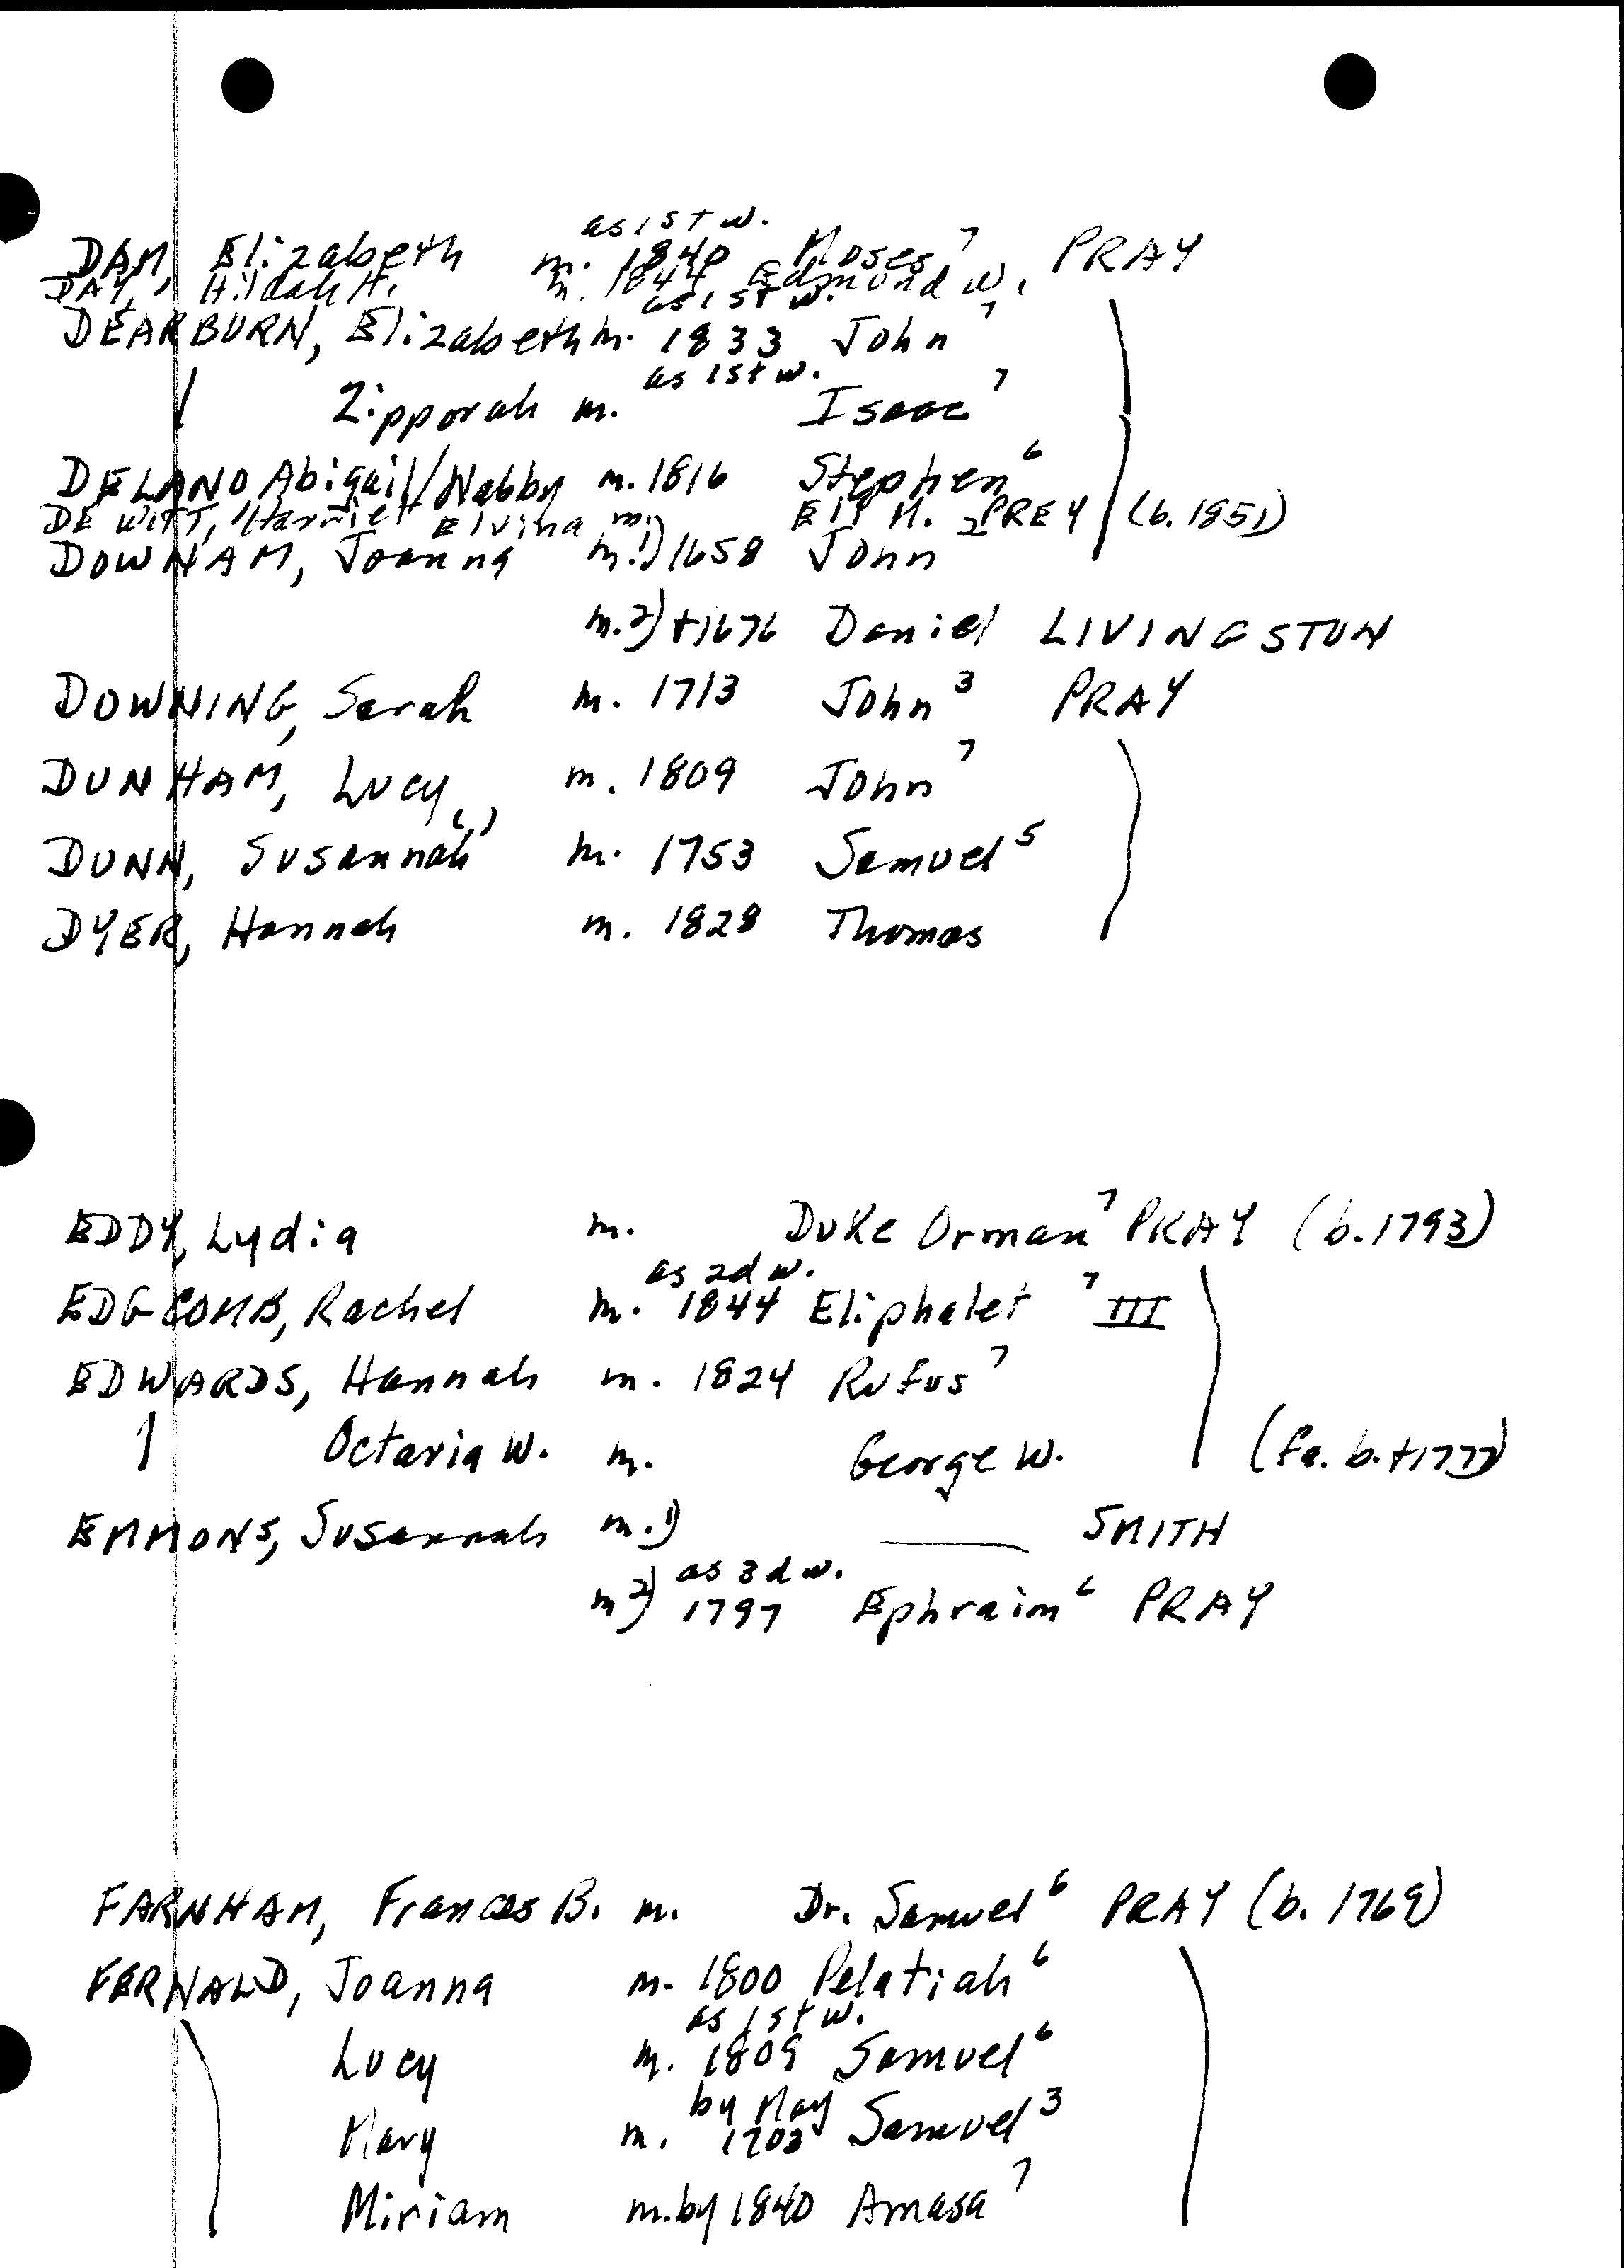 as 1st w.
DAM, Elizabeth m. 1840 Moses⁷ PRAY
DAY, Hildah H. m. 1844 Edmond W.
as 1st w.
DEARBURN, Elizabeth m. 1833 John⁷
as 1st w.
Zipporah m. Isaac⁷
DELANO Abigail/Nabby m. 1816 Stephen⁶
DE WITT, Harriet Elvina m. Eli M. PREY (b. 1851)
DOWNAM, Joanna m.1) 1658 John²
m.2) +1676 Daniel LIVINGSTON
DOWNING, Sarah m. 1713 John³ PRAY
DUNHAM, Lucy m. 1809 John⁷
DUNN, Susanna(h) m. 1753 Samuel⁵
DYER, Hannah m. 1828 Thomas
EDDY, Lydia m. Duke Orman⁷ PRAY (b. 1793)
as 2d w.
EDGCOMB, Rachel m. 1844 Eliphalet⁷ III
EDWARDS, Hannah m. 1824 Rufus⁷
Octavia W. m. George W. (fa. b. +1777)
EMMONS, Susannah m.1) —— SMITH
as 3d w.
m 2) 1797 Ephraim⁶ PRAY
FARNHAM, Frances B. m. Dr. Samuel⁶ PRAY (b. 1769)
FERNALD, Joanna m. 1800 Pelatiah⁶
as 1st w.
Lucy m. 1809 Samuel⁶
by May
Mary m. 1703 Samuel³
Miriam m. by 1840 Amasa⁷